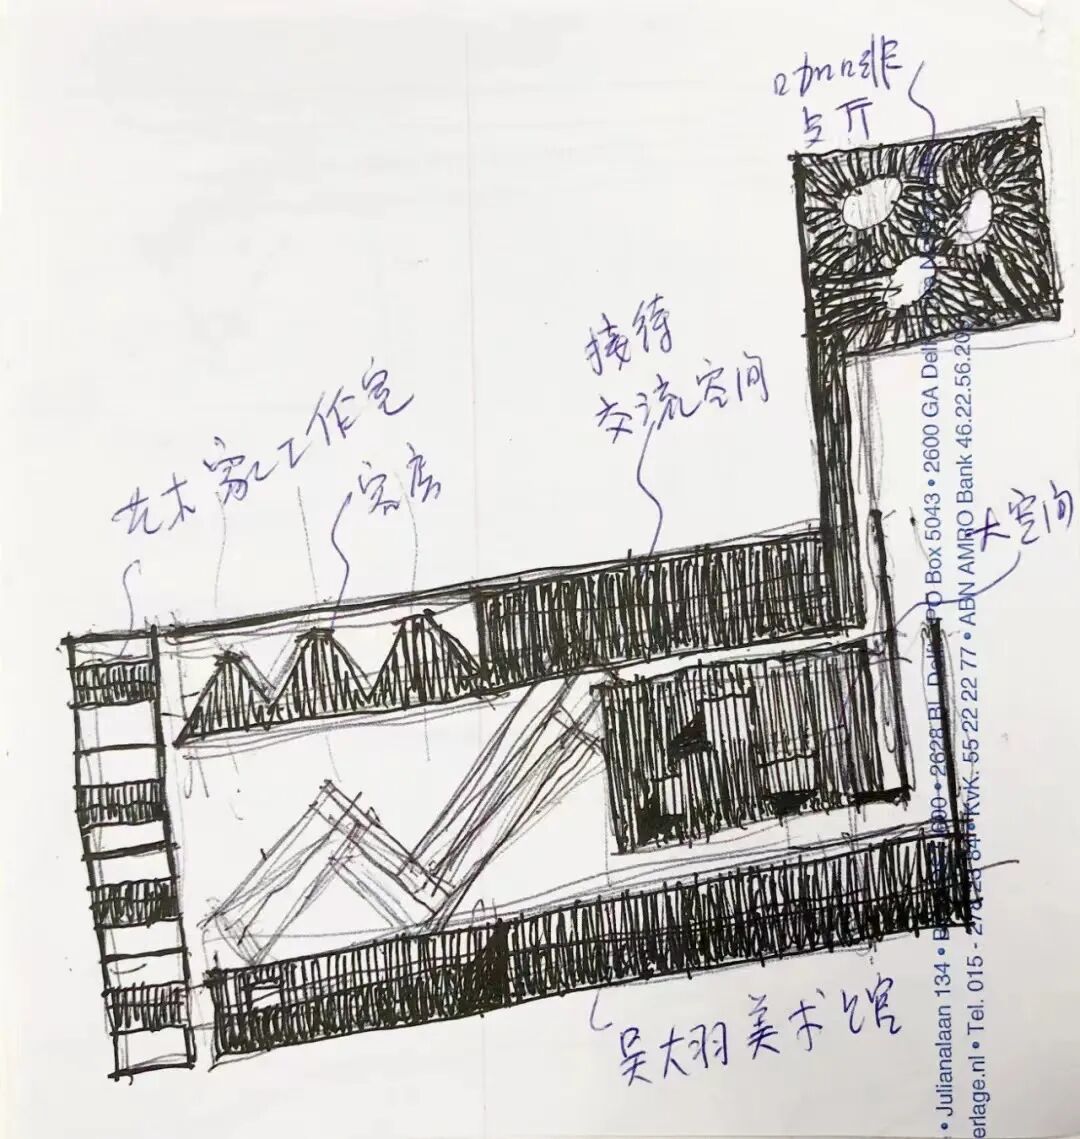 咖啡
与厅
接待
交流空间
艺术家工作室
客房
大空间
吴大羽美术馆
PO Box 5043 • 2600 GA Del
ABN AMRO Bank 46.22.56.20
• Julianalaan 134 •
2628 BL Del
erlage.nl • Tel. 015 - 27
KvK. 55 22 22 77 •